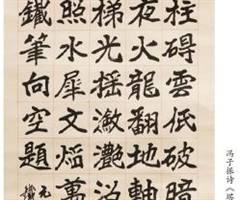 柱礙雲低破暗
夜火龍翻地軸
梯光搖瀲灩沿
照水犀文焰萬
鐵筆向空題
元
冯子振诗《塔